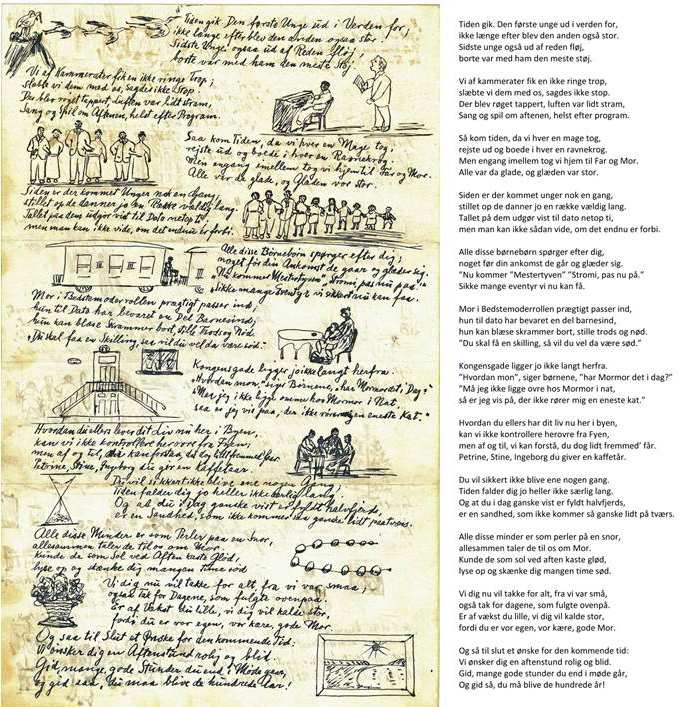 Tiden gik. Den første Unge ud i Verden for,
ikke længe efter blev den anden ogsaa stor.
Sidste Unge ogsaa ud af Reden fløj,
borte var med ham den meste Støj.
Vi af Kammerater fik en ikke ringe Trop;
slæbte vi dem med os, sagdes ikke Stop.
Der blev røget tappert, Luften var lidt stram,
Sang og Spil om Aftenen, helst efter Program.
Saa kom Tiden, da vi hver en Mage tog,
rejste ud og boede i hver en Ravnekrog.
Men engang imellem tog vi hjem til Far og Mor.
Alle var de glade, og Glæden var stor.
Siden er der kommet Unger nok en Gang,
stillet op de danner jo en Række vældig lang.
Tallet paa dem udgør vist til Dato netop ti,
men man kan ikke vide, om det endnu er forbi.
Alle disse Børnebørn spørger efter dig,
noget før din Ankomst de gaar og glæder sig.
"Nu kommer Mestertyven" "Stromi, pas nu paa."
Sikke mange Eventyr vi sikkert nu kan faa.
Mor i Bedstemoderrollen prægtigt passer ind,
hun til Dato har bevaret en Del Barnesind,
hun kan blæse Skrammer bort, stille Trods og Nød.
"Du skal faa en Skilling, saa vil du vel da være sød."
Kongensgade ligger jo ikke langt herfra.
"Hvordan mon", siger Børnene, "har Mormor det i Dag?"
"Maa jeg ikke ligge ovre hos Mormor i Nat,
saa er jeg vis paa, der ikke rører mig en eneste Kat."
Hvordan du ellers har dit Liv nu her i Byen,
kan vi ikke kontrollere herovre fra Fyen,
men af og til, kan forstaa, du dog lidt Fremmed' faar.
Petrine, Stine, Ingeborg du giver en Kaffetaar.
Du vil sikkert ikke blive ene nogen Gang,
Tiden falder dig jo heller ikke særlig lang.
Og at du i Dag ganske vist er fyldt halvfjerds,
er en Sandhed, som ikke kommer saa ganske lidt paa tværs.
Alle disse Minder er som Perler paa en Snor,
allesammen taler de til os om Mor.
Kunde de som Sol ved Aften kaste Glød,
lyse op og skænke dig mangen Time sød.
Vi dig nu vil takke for alt fra vi var smaa,
ogsaa tak for Dagene, som fulgte ovenpaa.
Er af Vækst du lille, vi dig vil kalde stor,
fordi du er vor egen, vor kære, gode Mor.
Og saa til Slut et Ønske for den kommende Tid:
Vi ønsker dig en Aftenstund rolig og blid.
Gid, mange, gode Stunder du end i Møde gaar,
og gid saa, du maa blive de hundrede Aar!
Tiden gik. Den første unge ud i verden for,
ikke længe efter blev den anden også stor.
Sidste unge også ud af reden fløj,
borte var med ham den meste støj.
Vi af kammerater fik en ikke ringe trop,
slæbte vi dem med os, sagdes ikke stop.
Der blev røget tappert, luften var lidt stram,
Sang og spil om aftenen, helst efter program.
Så kom tiden, da vi hver en mage tog,
rejste ud og boede i hver en ravnekrog.
Men engang imellem tog vi hjem til Far og Mor.
Alle var da glade, og glæden var stor.
Siden er der kommet unger nok en gang,
stillet op de danner jo en række vældig lang.
Tallet på dem udgør vist til dato netop ti,
men man kan ikke sådan vide, om det endnu er forbi.
Alle disse børnebørn spørger efter dig,
noget før din ankomst de går og glæder sig.
"Nu kommer "Mestertyven" "Stromi, pas nu på."
Sikke mange eventyr vi nu kan få.
Mor i Bedstemoderrollen prægtigt passer ind,
hun til dato har bevaret en del barnesind,
hun kan blæse skrammer bort, stille trods og nød.
"Du skal få en skilling, så vil du vel da være sød."
Kongensgade ligger jo ikke langt herfra.
"Hvordan mon", siger børnene, "har Mormor det i dag?"
"Må jeg ikke ligge ovre hos Mormor i nat,
så er jeg vis på, der ikke rører mig en eneste kat."
Hvordan du ellers har dit liv nu her i byen,
kan vi ikke kontrollere herovre fra Fyen,
men af og til, vi kan forstå, du dog lidt fremmed' får.
Petrine, Stine, Ingeborg du giver en kaffetår.
Du vil sikkert ikke blive ene nogen gang.
Tiden falder dig jo heller ikke særlig lang.
Og at du i dag ganske vist er fyldt halvfjerds,
er en sandhed, som ikke kommer så ganske lidt på tværs.
Alle disse minder er som perler på en snor,
allesammen taler de til os om Mor.
Kunde de som sol ved aften kaste glød,
lyse op og skænke dig mangen time sød.
Vi dig nu vil takke for alt, fra vi var små,
også tak for dagene, som fulgte ovenpå.
Er af vækst du lille, vi dig vil kalde stor,
fordi du er vor egen, vor kære, gode Mor.
Og så til slut et ønske for den kommende tid:
Vi ønsker dig en aftenstund rolig og blid.
Gid, mange gode stunder du end i møde går,
Og gid så, du må blive de hundrede år!